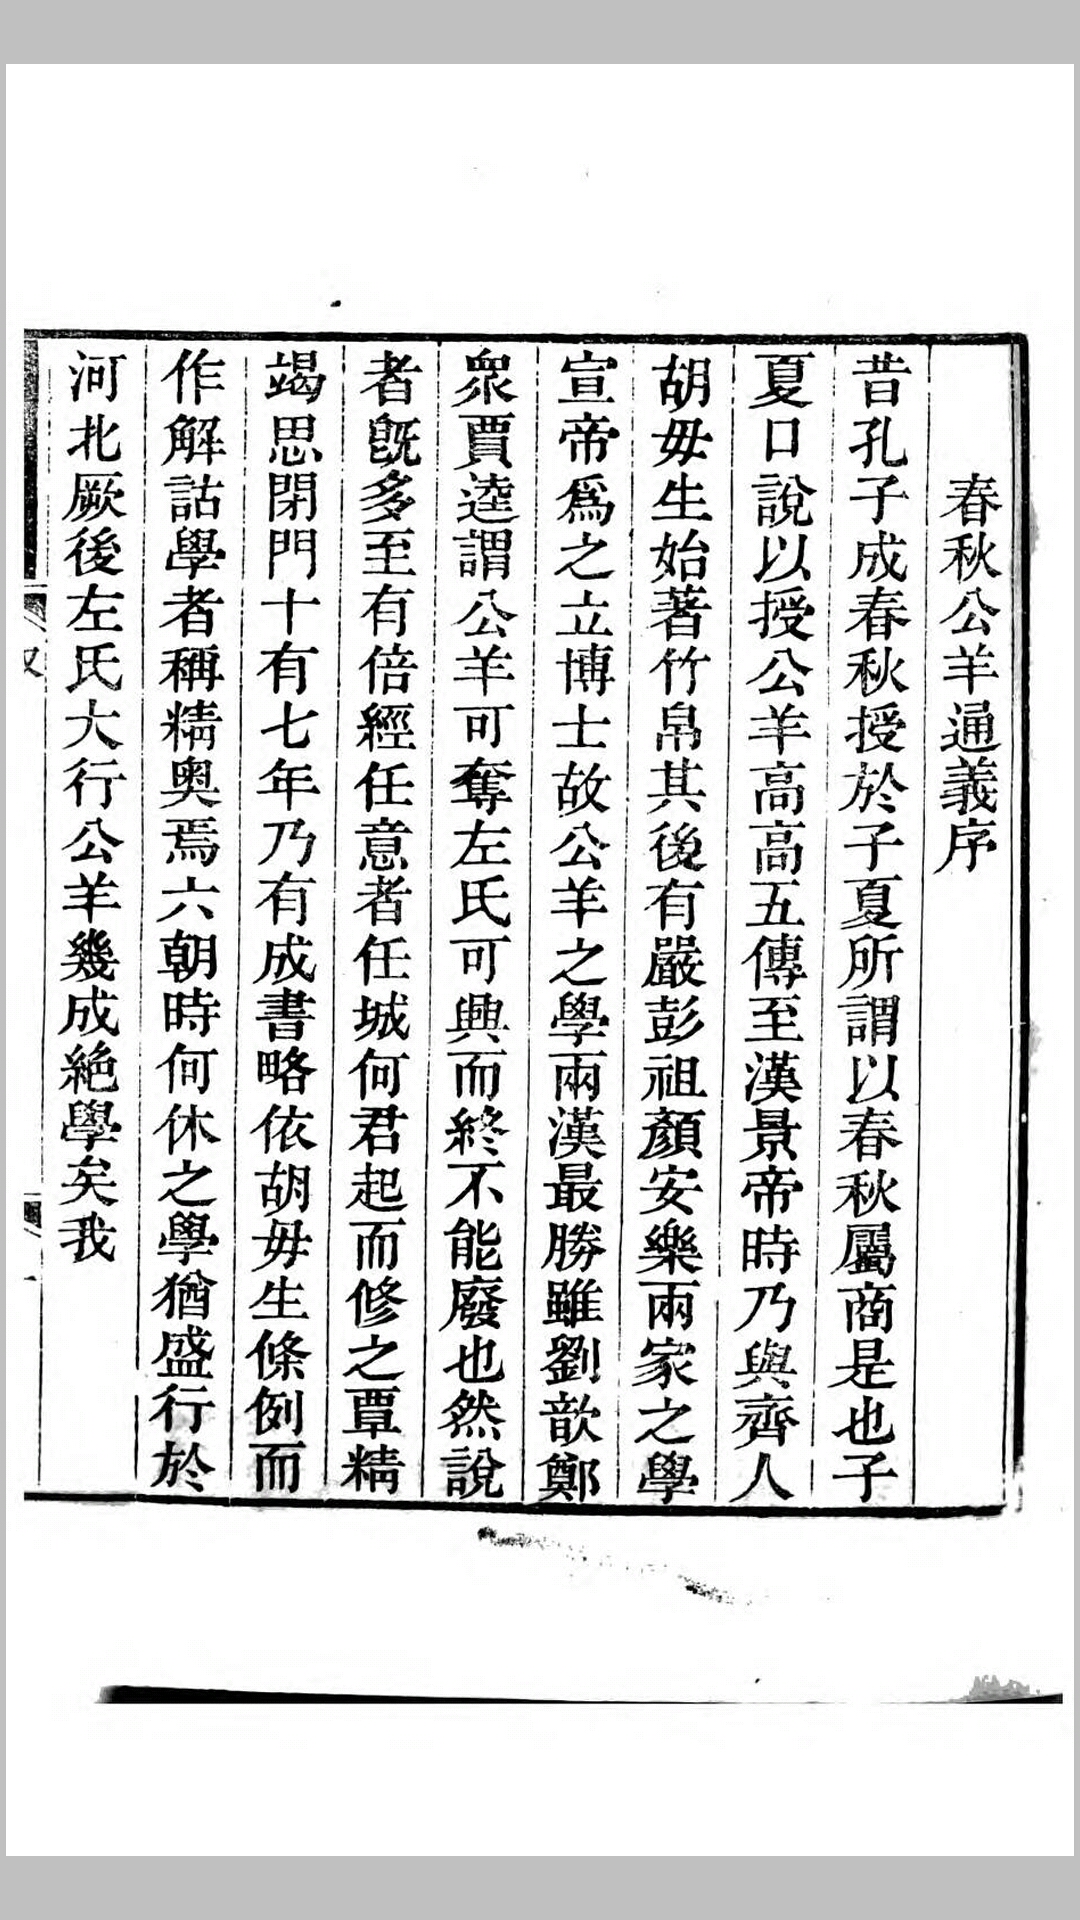 春秋公羊通義序
昔孔子成春秋授於子夏所謂以春秋屬商是也子
夏口說以授公羊高高五傳至漢景帝時乃與齊人
胡毋生始著竹帛其後有嚴彭祖顏安樂兩家之學
宣帝爲之立博士故公羊之學兩漢最勝雖劉歆鄭
衆賈逵謂公羊可奪左氏可興而終不能廢也然說
者旣多至有倍經任意者任城何君起而修之覃精
竭思閉門十有七年乃有成書略依胡毋生條例而
作解詁學者稱精奥焉六朝時何休之學猶盛行於
河北厥後左氏大行公羊幾成絶學矣我